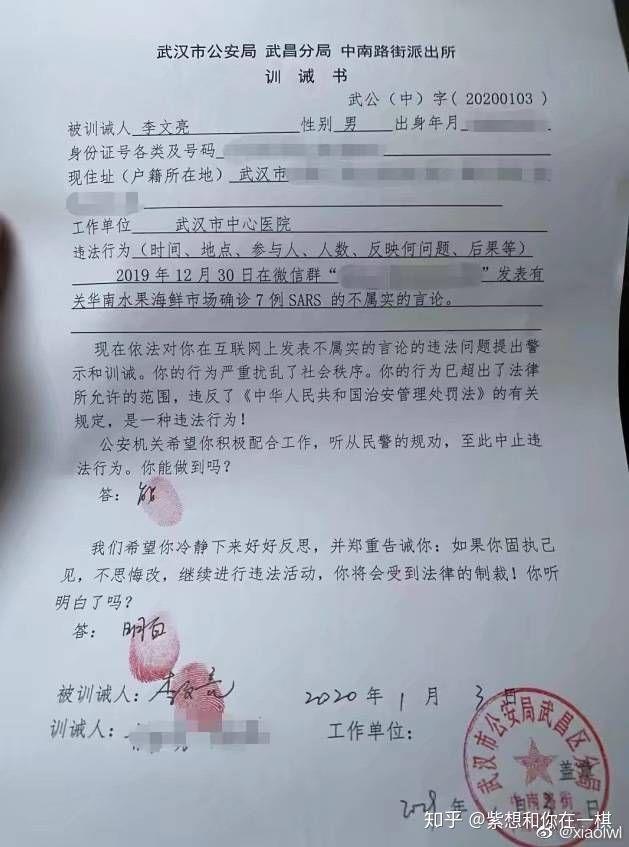 武汉市公安局 武昌分局 中南路街派出所
训 诫 书
武公（中）字（20200103）
被训诫人 李文亮 性别 男 出身年月
身份证号各类及号码
现住址（户籍所在地） 武汉市
工作单位 武汉市中心医院
违法行为（时间、地点、参与人、人数、反映何问题、后果等）
2019年12月30日在微信群“ ”发表有
关华南水果海鲜市场确诊7例SARS 的不属实的言论。
现在依法对你在互联网上发表不属实的言论的违法问题提出警
示和训诫。你的行为严重扰乱了社会秩序。你的行为已超出了法律
所允许的范围，违反了《中华人民共和国治安管理处罚法》的有关
规定，是一种违法行为！
公安机关希望你积极配合工作，听从民警的规劝，至此中止违
法行为。你能做到吗？
答：能
我们希望你冷静下来好好反思，并郑重告诫你：如果你固执己
见，不思悔改，继续进行违法活动，你将会受到法律的制裁！你听
明白了吗？
答：明白
被训诫人：李文亮 2020年1月3日
训诫人： 工作单位：
武汉市公安局武昌区分局
盖章
中南路街
年 月 日
知乎 @紫想和你在一棋
@xiaolwl